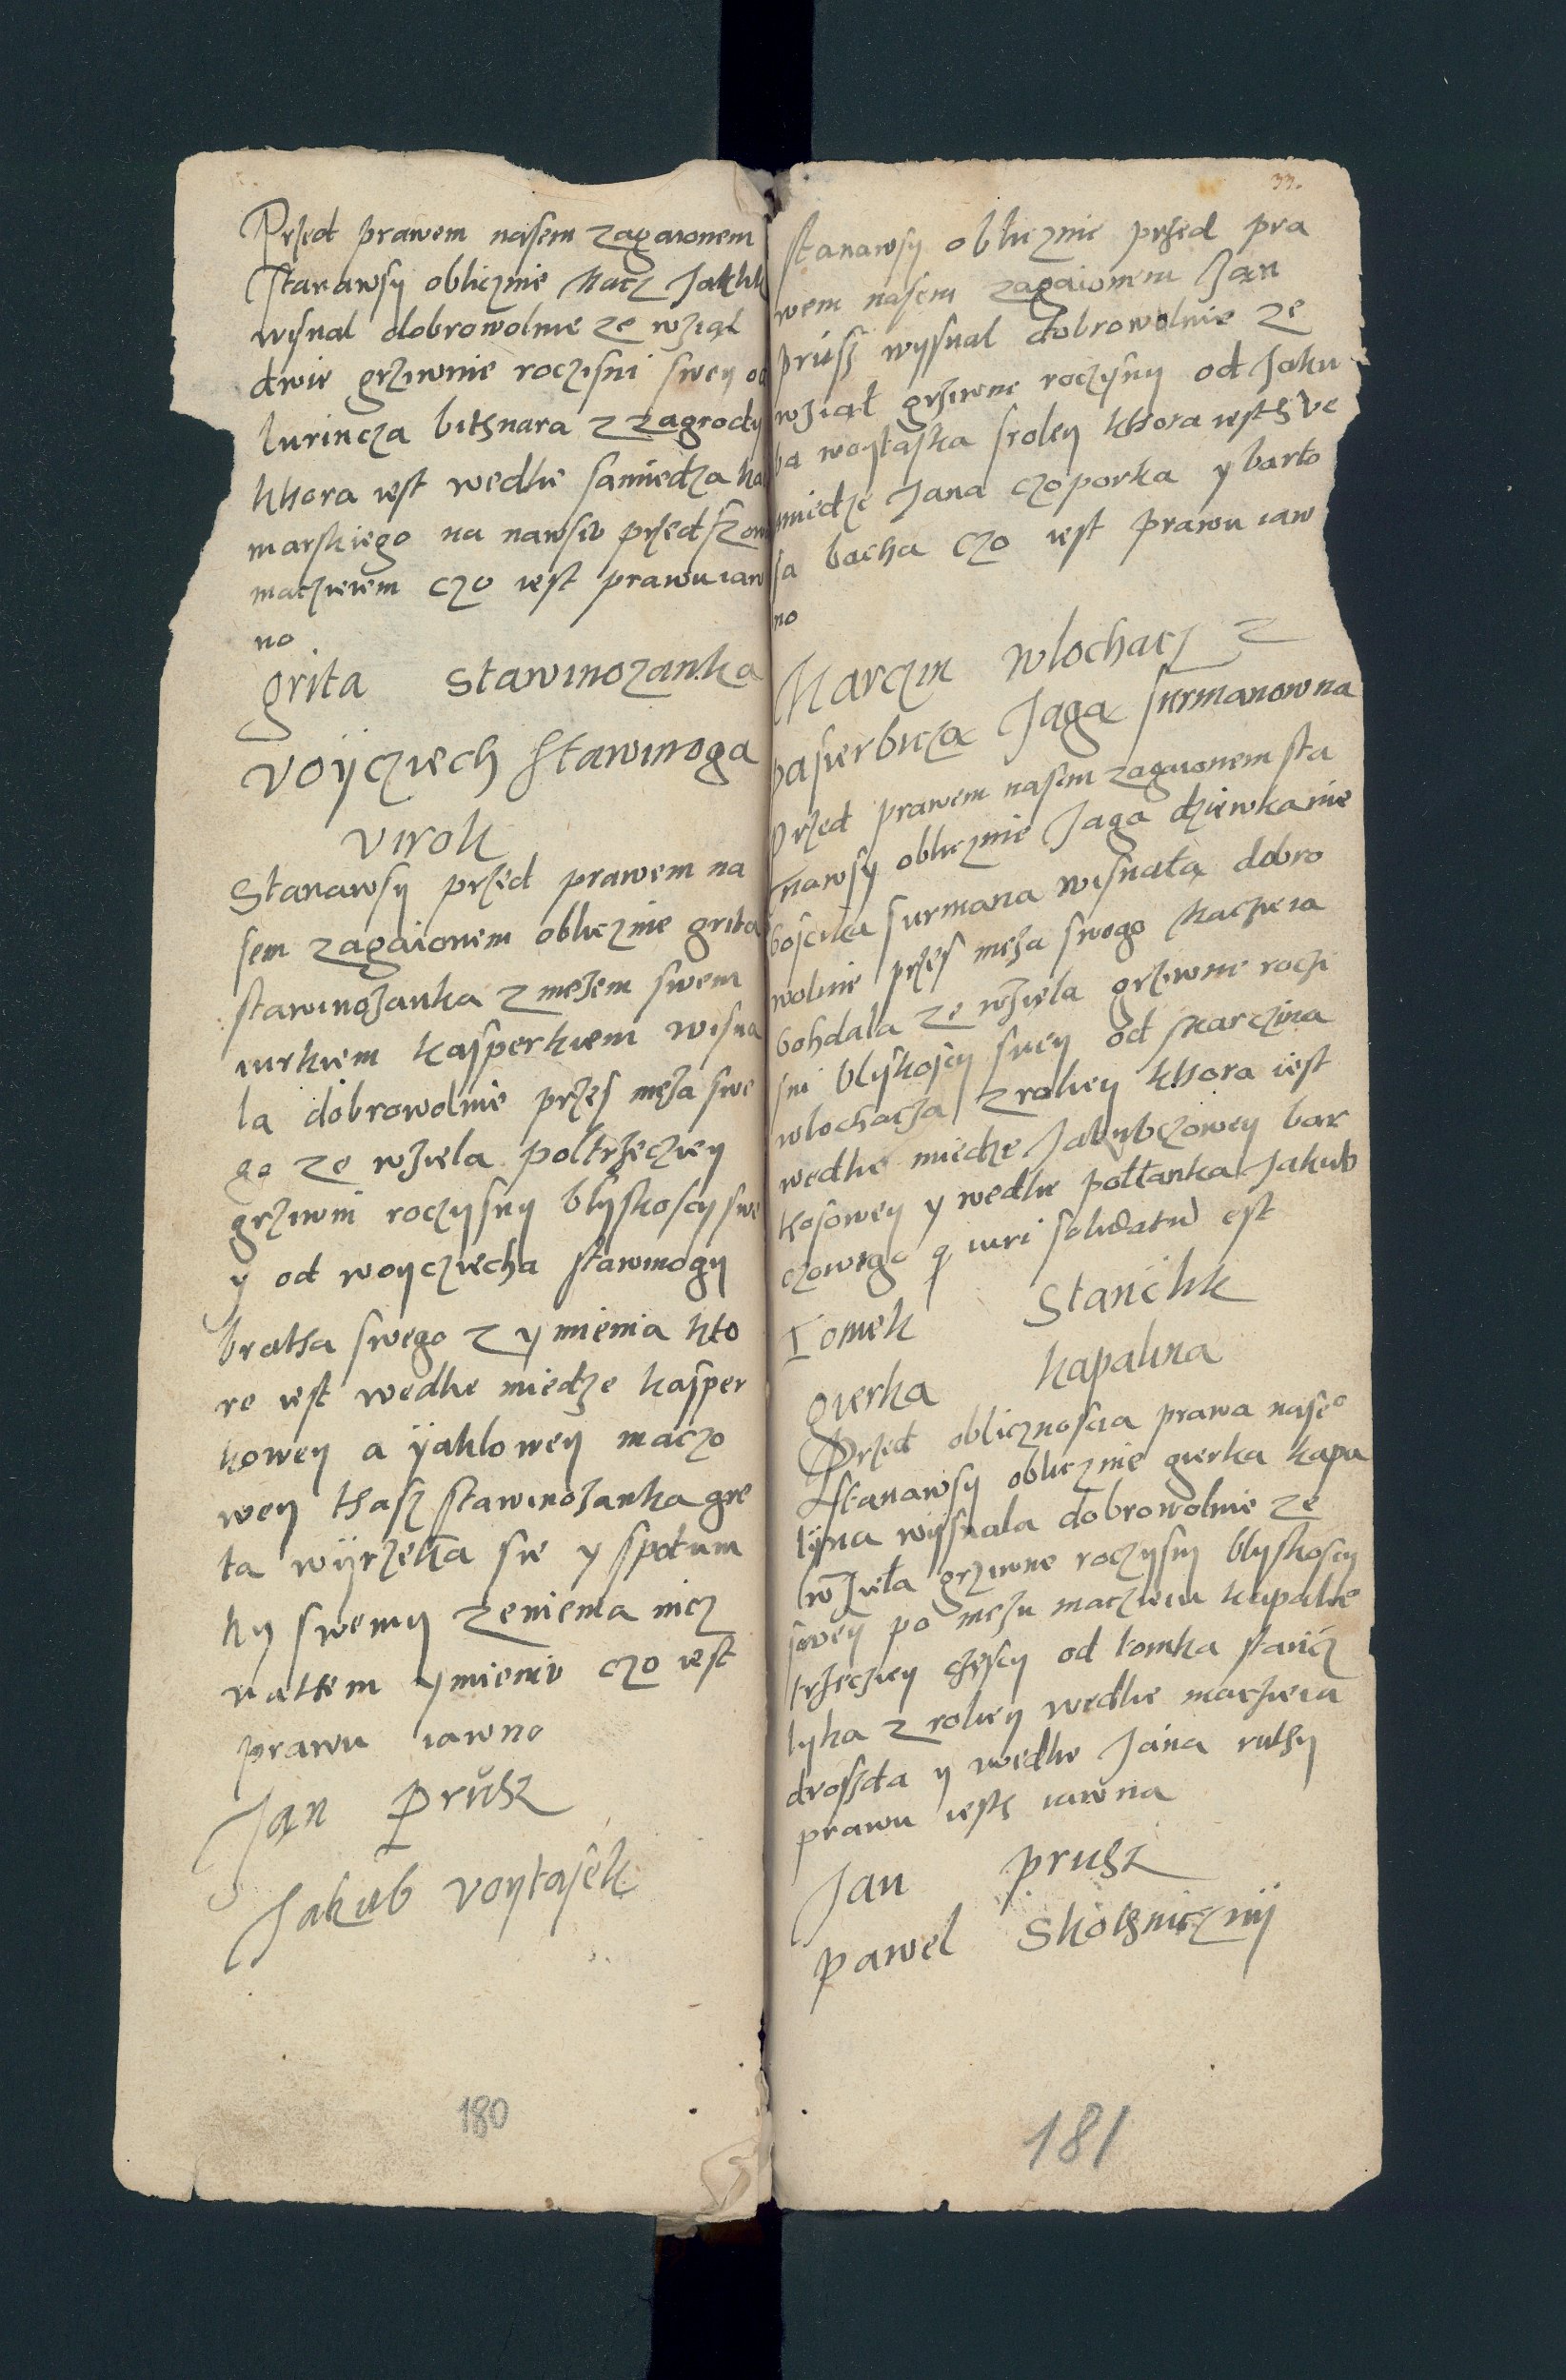 Przed prawem nasem zagaionem
Stanawsy oblicznie Macz Jakluk
wisnal dobrowolnie ze wział
dwie grziwnie roczisni swey od
lurincza bithnara z zagrody
kthora iest wedlie samiedza ka
marskiego na nawsiv przed szom
maczieiem czo iest prawu iaw
no
grita Stawinozanka
voÿcziech stawinoga
virok
Stanawsy przed prawem na
sem zagaionem oblicznie grita
stawinozanka z mezem swem
iurkiem kasperkiem wisna
la dobrowolnie przes męza swe
go ze wziela poltrzecziey
grziwni roczysny blyskoscy swe
y od woycziecha stawinogy
bratha swego z ymienia kto
re iest wedlie miedze kasper
kowey a ÿaklowey maczo
wey thasz stawinozanka gre
ta wÿrzekła sie y spotum
ky swemy zeniema nicz
natem ymieniv czo iest
prawu iawno
Jan Prusz
Jakub voytasek
180
33.
stanawsy oblicznie przed pra
wem nasem zagaionem Jan
prusz wysnal dobrowolnie ze
wział grziwne roczysny od Jaku
ba woytaska sroley kthora iesth ve
miedze Jana czoporka y barto
sa bacha czo iest prawu iaw
no
Marczin wlochacz z
pasierbicza Jaga surmanowna
Przed prawem nasem zagaionem sta
nawsy oblicznie Jaga dziewka nie
boscika surmana wisnała dobro
wolnie przes męza swogo Maczieia
bohdala ze wziela grziwne roczi
sni blyskoscy swey od Marczina
wlochacza z roliey kthora iest
wedlie miedze Jakubczowey bar
kosowey y wedlie połtanka Jakub
czowego q iuri solidatu est
Tomek Stanclik
gierka kapalina
Przed oblicznoscia prawa nase°
stanawsy oblicznie gierka kapa
lÿna wysnala dobrowolnie ze
wzieła grziwne roczysny blyskoscy
swey po męzu maczieiu kapalie
trzecziey częscy od tomka stancz
lyka z roliey wedlie macziera
droszda y wedlie Jana ruthy
prawu iesth iawna
Jan prusz
pawel Skothnicznÿ
181